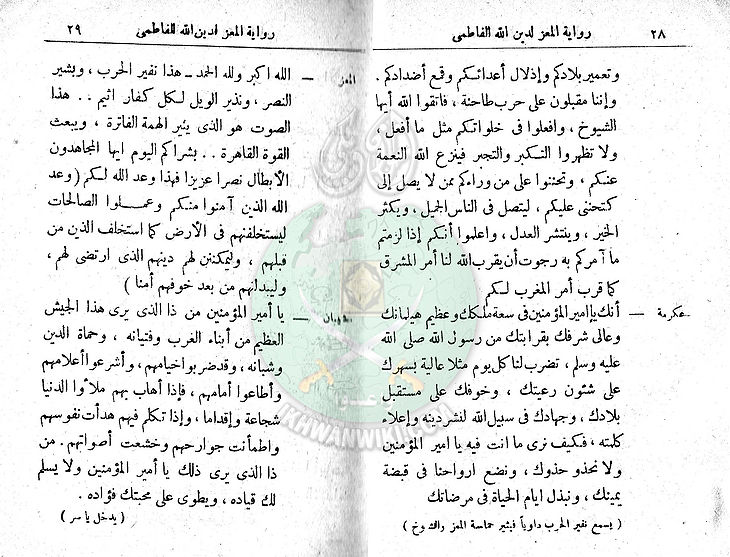 ٢٨ رواية المعز لدين الله الفاطمى
وتعمير بلادكم وإذلال أعدائكم وقمع أضدادكم .
وإننا مقبلون على حرب طاحنة ، فاتقوا الله أيها
الشيوخ ، وافعلوا فى خلواتكم مثل ما أفعل ،
ولا تظهروا التكبر والتجبر فينزع الله النعمة
عنكم ، وتحننوا على من وراءكم ممن لا يصل إلى
كتحننى عليكم ، ليتصل فى الناس الجميل ، ويكثر
الخير ، وينتشر العدل ، واعلموا أنكم إذا لزمتم
ما آمركم به رجوت أن يقرب الله لنا أمر المشرق
كما قرب أمر المغرب لكم
عكرمة — أنك يا أمير المؤمنين فى سعة ملكك وعظيم هيلمانك
وعالى شرفك بقرابتك من رسول الله صلى الله
عليه وسلم ، تضرب لنا كل يوم مثلا عالية بسهرك
على شئون رعيتك ، وخوفك على مستقبل
بلادك ، وجهادك فى سبيل الله لنشر دينه وإعلاء
كلمته ، فكيف نرى ما انت فيه يا امير المؤمنين
ولا نحذو حذوك ، ونضع ارواحنا فى قبضة
يمينك ، ونبذل ايام الحياة فى مرضاتك
( يسمع نفير الحرب داوياً فيثير حماسة المعز
رواية المعز لدين الله الفاطمى ٢٩
المعز — الله اكبر ولله الحمد ــ هذا نفير الحرب ، وبشير
النصر ، ونذير الويل لكل كفار اثيم . . هذا
الصوت هو الذى يثير الهمة الفاترة ، ويبعث
القوة القاهرة . . بشراكم اليوم ايها المجاهدون
الأبطال نصرا عزيزا فهذا وعد الله لكم ( وعد
الله الذين آمنوا منكم وعمــلوا الصالحات
ليستخلفنهم فى الأرض كما استخلف الذين من
قبلهم ، وليمكنن لهم دينهم الذى ارتضى لهم ،
وليبدلنهم من بعد خوفهم أمنا )
— يا أمير المؤمنين من ذا الذى يرى هذا الجيش
العظيم من أبناء الغرب وفتيانه ، وحماة الدين
وشبانه ، وقد ضربوا خيامهم ، وأشرعوا أعلامهم
وأطاعوا أمامهم ، فإذا أهاب بهم ملأوا الدنيا
شجاعة وإقداما ، وإذا تكلم فيهم هدأت نفوسهم
واطمأنت جوارحهم وخشعت أصواتهم . من
ذا الذى يرى ذلك يا أمير المؤمنين ولا يسلم
لك قياده ، ويطوى على محبتك فؤاده .
( يدخل ياسر )
IKHWANWIKI.COM